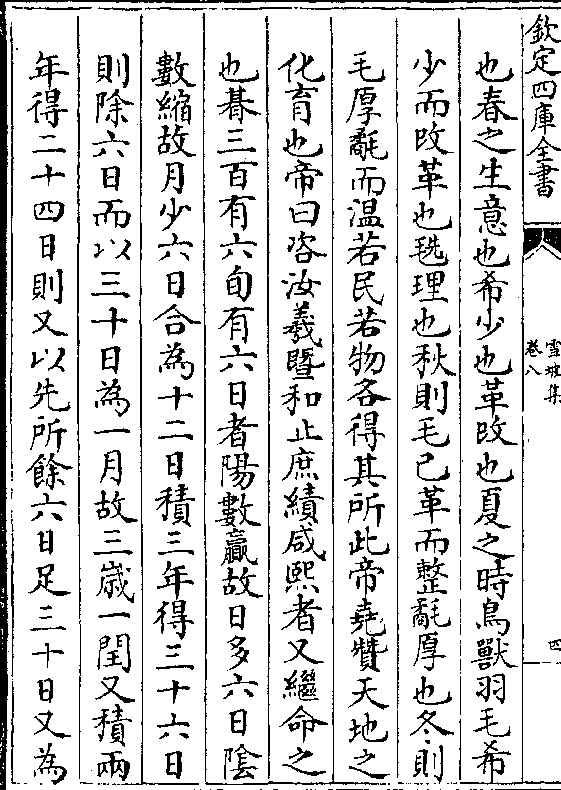 欽定四庫全書
雪坡集
卷八
四
也春之生意也希少也革改也夏之時鳥獸羽毛希
少而改革也毨理也秋則毛已革而整氄厚也冬則
毛厚氄而温若民若物各得其所此帝堯賛天地之
化育也帝曰咨汝羲暨和止庶績咸熙者又繼命之
也朞三百有六旬有六日者陽數贏故日多六日陰
數縮故月少六日合為十二日積三年得三十六日
則除六日而以三十日為一月故三嵗一閏又積兩
年得二十四日則又以先所餘六日足三十日又為